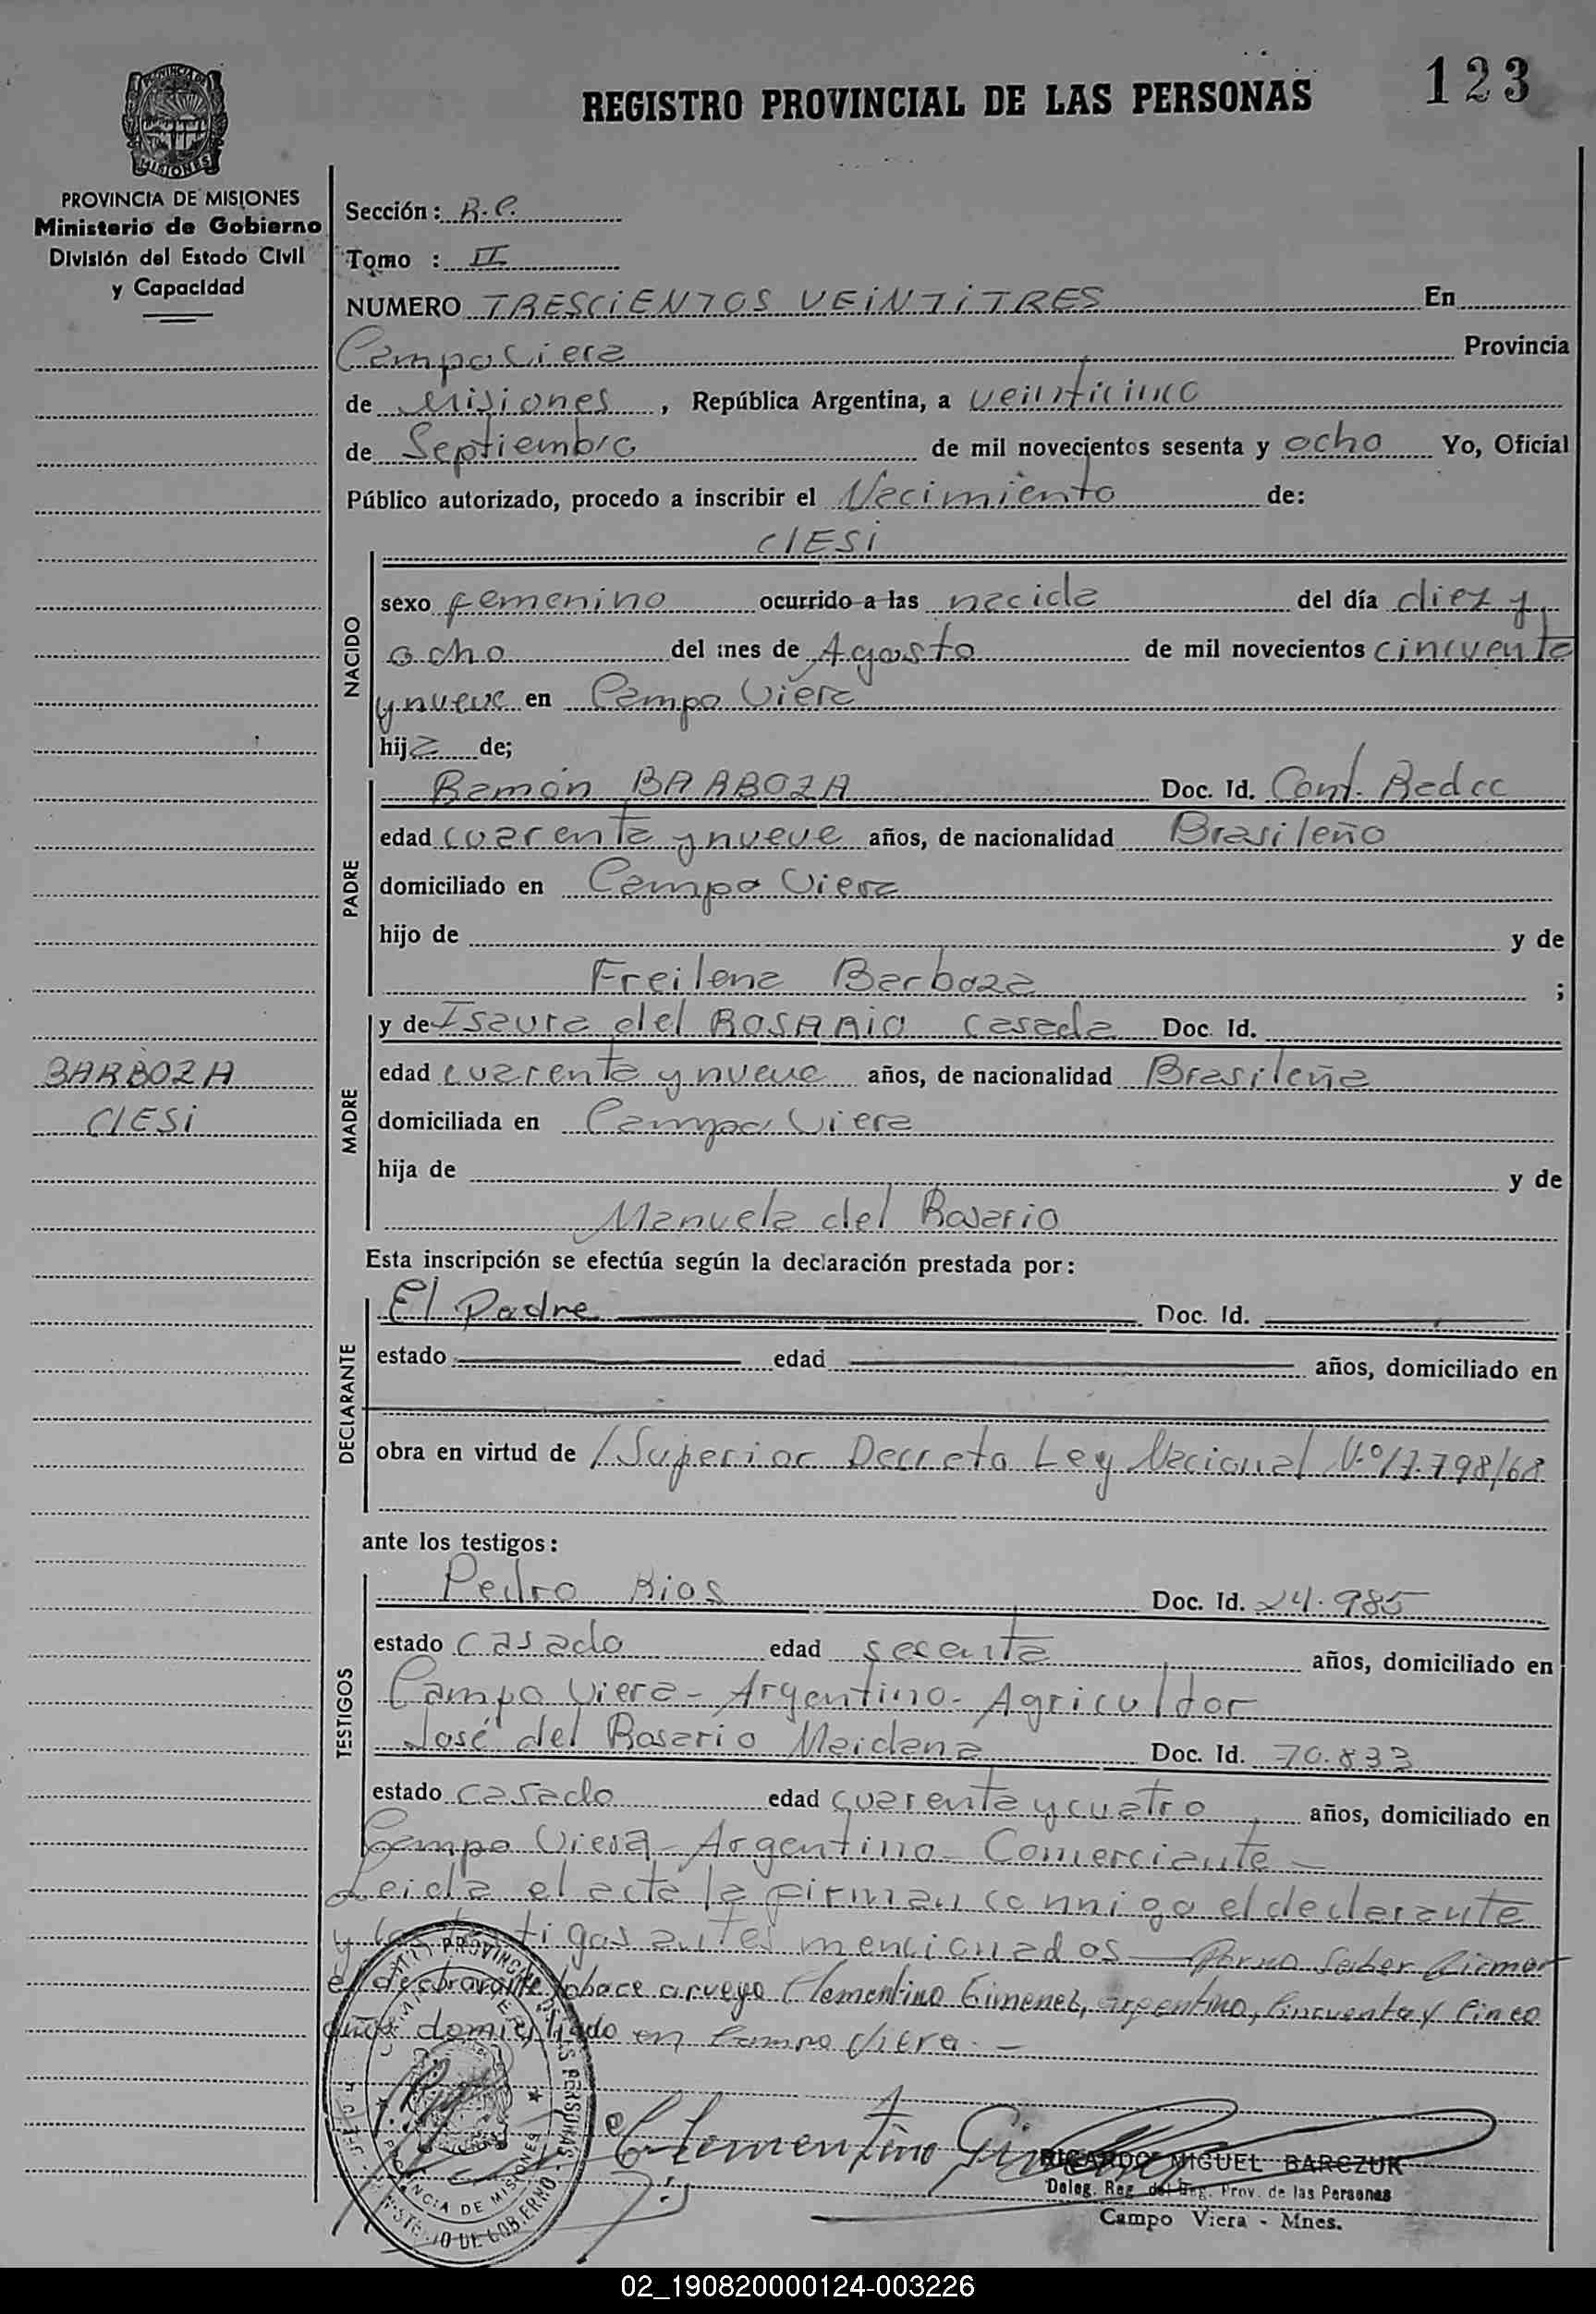 123
REGISTRO PROVINCIAL DE LAS PERSONAS
PROVINCIA DE MISIONES
Ministerio de Gobierno
División del Estado Civil
y Capacidad
Sección: R.C.
Tomo : II
NUMERO TRESCIENTOS VEINTITRES En
Campo Viera Provincia
de Misiones, República Argentina, a veinticinco
de Septiembre de mil novecientos sesenta y ocho Yo, Oficial
Público autorizado, procedo a inscribir el Nacimiento de:
CIESI
NACIDO
sexo femenino ocurrido a las nacida del día diez y
ocho del mes de Agosto de mil novecientos cincuenta
y nueve en Campo Viera
hija de;
PADRE
Ramón BARBOZA Doc. Id. Cont. Redcc
edad cuarenta y nueve años, de nacionalidad Brasileño
domiciliado en Campo Viera
hijo de y de
Freilena Barboza ;
MADRE
y de Isaura del ROSARIO casada Doc. Id.
BARBOZA
CIESI
edad cuarenta y nueve años, de nacionalidad Brasileña
domiciliada en Campo Viera
hija de y de
Manuela del Rosario
Esta inscripción se efectúa según la declaración prestada por:
DECLARANTE
El Padre Doc. Id.
estado edad años, domiciliado en
obra en virtud de /Superior Decreto Ley Nacional N.º17.798/68
ante los testigos:
TESTIGOS
Pedro Rios Doc. Id. 24.985
estado casado edad sesenta años, domiciliado en
Campo Viera - Argentino - Agricultor
José del Rosario Maidana Doc. Id. 70.833
estado casado edad cuarenta y cuatro años, domiciliado en
Campo Viera - Argentino - Comerciante -
Leida el acta la firman conmigo el declarante
y los testigos antes mencionados - Por no saber firmar
el declarante lo hace a ruego Clementino Gimenez, argentino, cincuenta y cinco
años domiciliado en Campo Viera. -
Clementino
RICARDO MIGUEL BARCZUK
Deleg. Reg. del Reg. Prov. de las Personas
Campo Viera - Mnes.
02_190820000124-003226